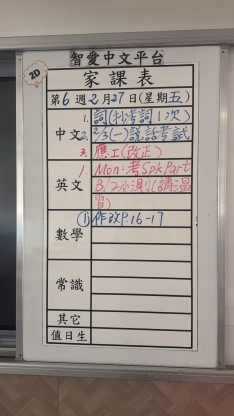 2D
智愛中文平台
家課表
第6週2月27日(星期五)
中文
1. 詞(抄考詞1次)
2. 2/3(一)說話考試
3. 應工(改正)
英文
1. Mon:考Spk Part
B/2小測(請溫
習)
數學
① 作改P.16-17
常識
其它
值日生